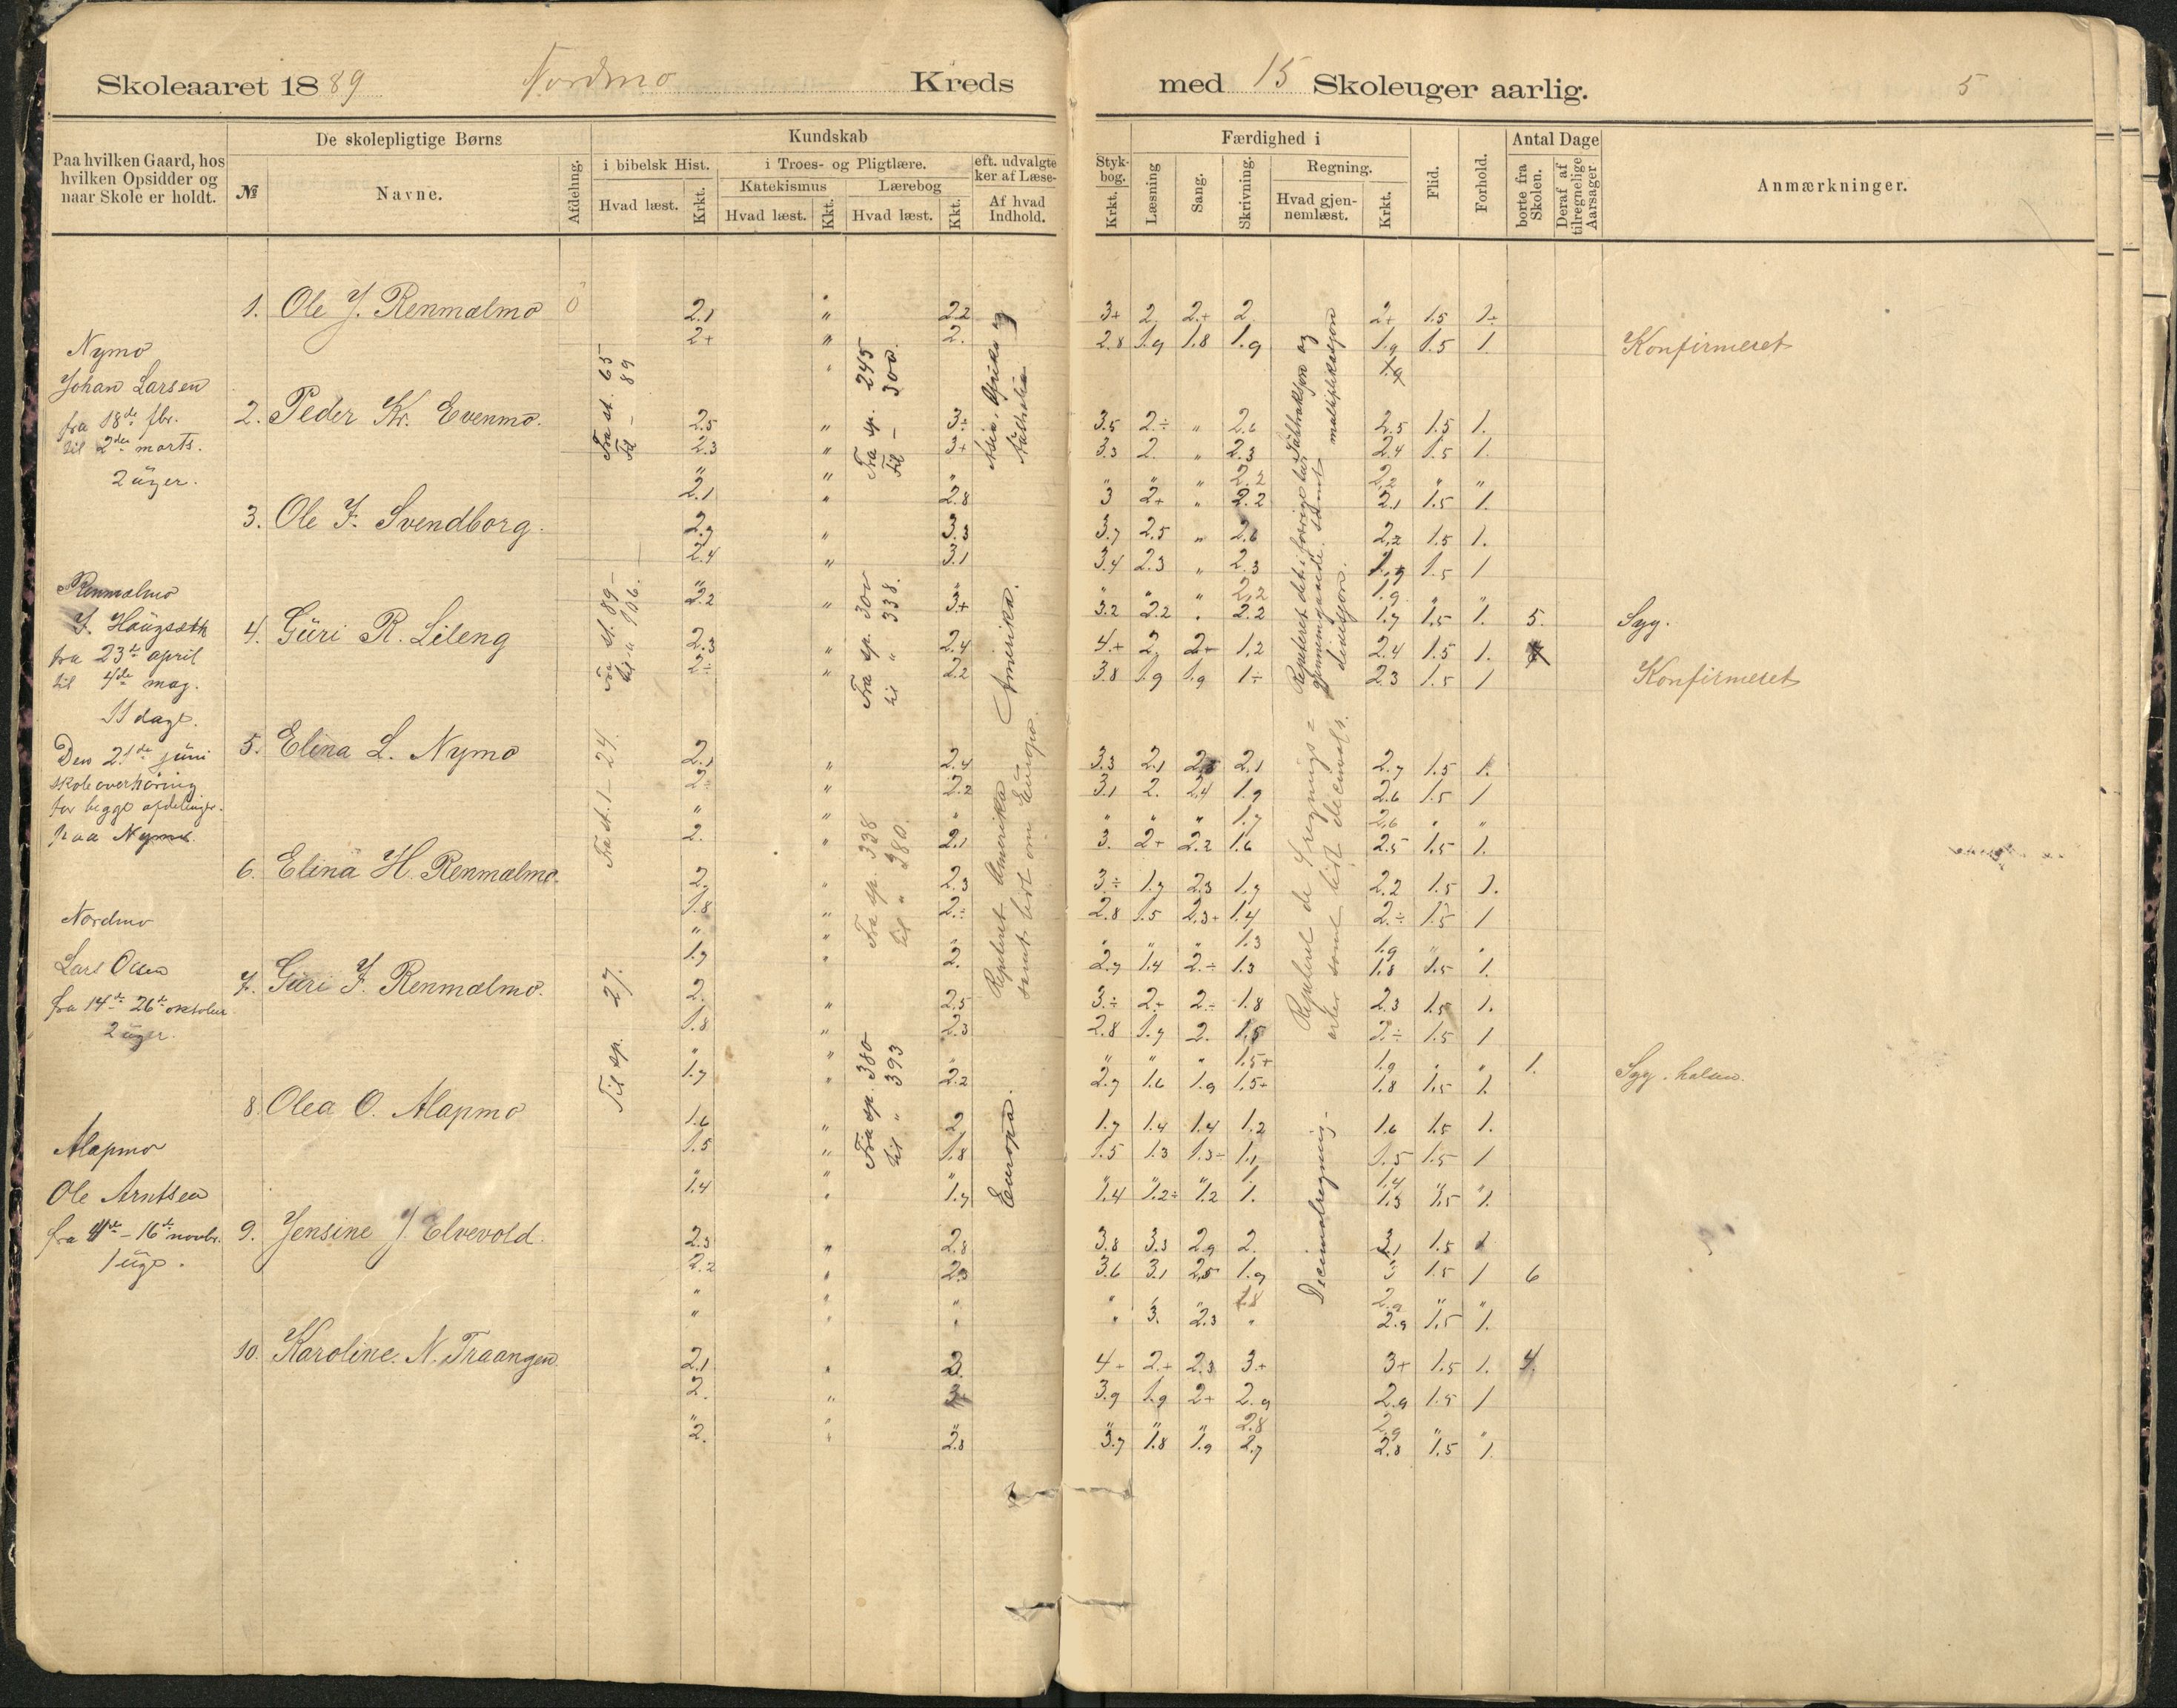 Skoleaaret 1889 Nordmo Kreds med 15 Skoleuger aarlig. 5
Paa hvilken Gaard, hos hvilken Opsidder og naar Skole er holdt.
De skolepligtige Børns
№
Navne.
Afdeling.
Kundskab
i bibelsk Hist.
Hvad læst.
Krkt.
i Troes- og Pligtlære.
Katekismus
Hvad læst.
Kkt.
Lærebog
Hvad læst.
Kkt.
eft. udvalgte
ker af Læse-
Af hvad
Indhold.
Styk-
bog.
Krkt.
Færdighed i
Læsning
Sang.
Skrivning.
Regning.
Hvad gjen-
nemlæst.
Krkt.
Flid.
Forhold.
Antal Dage
borte fra
Skolen.
Deraf af
tilregnelige
Aarsager
Anmærkninger.
Nymo
Johan Larsen
fra 18de fbr.
til 2den marts.
2 üger.
Renmælmo
J. Haügseth
fra 23de april
til 4de mag.
11 dage.
Den 21de jüni
skoleoverhøring
for begge afdelinger.
paa Nymo.
Nordmo
Lars Olsen
fra 14de 26de oktober
2 üger.
Alapmo
Ole Arntsen
fra 11te – 16de novbr.
1 üge.
1. Ole J. Renmælmo 0 2.1 " 2.2 3+ 2. 2.+ 2. 2+ 1.5 1÷
2+ " 2. 2.8 1.9 1.8 1.9 1.9 1.5 1. Konfirmeret
1.9
2. Peder Kr. Evenmo. 2.5 " 3÷ 3.5 2÷ " 2.6 2.5 1.5 1.
2.3 " 3+ 3.3 2. " 2.3 2.4 1.5 1.
" " " " " " 2.2 2.2 " "
2.1 " 2.8 3 2+ " 2.2 2.1 1.5 1.
3. Ole F. Svendborg. 2.7 " 3.3 3.7 2.5 " 2.6 2.2 1.5 1.
2.4 " 3.1 3.4 2.3 " 2.3 1.5 1
" " " " " 2.2 1.9 " "
2.2 " 3+ 3.2 2.2 " 2.2 1.7 1.5 1. 5. Syg.
4. Güri R. Lileng 2.3 " 2.4 4.+ 2. 2+ 1.2 2.4 1.5 1.
2÷ " 2.2 3.8 1.9 1.9 1÷ 2.3 1.5 1 Konfirmeret
5. Elina L. Nymo 2.1 " 2.4 3.3 2.1 2.5 2.1 2.7 1.5 1.
2÷ " 2.2 3.1 2. 2.4 1.9 2.6 1.5 1
" " " " " " 1.7 2.6 " "
2. " 2.1 3. 2+ 2.2 1.6 2.5 1.5 1.
6. Elina H. Renmælmo. 2. " 2.3 3÷ 1.7 2.3 1.7 2.2 1.5 1.
1.8 " 2.÷ 2.8 1.5 2.3+ 1.4 2.÷ 1.5 1
" " " " " " 1.3 1.9 " "
1.7 " 2. 2.7 1.4 2.÷ 1.3 1.8 1.5 1.
7. Güri F. Renmælmo. 2. " 2.5 3÷ 2+ 2÷ 1.8 2.3 1.5 1.
1.8 " 2.3 2.8 1.7 2. 1.5 2.÷ 1.5 1
" " " " " " 1.5+ 1.9 " " 1. Syg.
1.7 " 2.2 2.7 1.6 1.9 1.5+ 1.8 1.5 1.
8. Olea O. Alapmo 1.6 " 2 1.7 1.4 1.4 1.2 1.6 1.5 1.
1.5 " 1.8 1.5 1.3 1.3÷ 1.1 1.5 1.5 1
" " " " " " 1. 1.4 " "
1.4 " 1.7 1.4 1.2÷ 1.2 1. 1.3 1.5 1.
9. Jensine J. Elvevold. 2.3 " 2.8 3.8 3.3 2.9 2. 3.1 1.5 1
2.2 " 2.3 3.6 3.1 2.5 1.9 3 1.5 1 6
" " " " " " 1.8 2.9 " "
" " " " 3. 2.3 " 2.9 1.5 1.
10. Karoline. N. Traangen 2.1 " 3. 4÷ 2.+ 2.3 3+ 3+ 1.5 1. 4.
2. " 3+ 3.9 1.9 2+ 2.9 2.9 1.5 1
" " " " " " 2.8 2.9 " "
2. " 2.8 3.7 1.8 1.9 2.7 2.8 1.5 1.
Fra st. 65
til – 89
Fra st. 89 –
til " 106.
Fra st. 1 – 24.
Til sp. 27.
Fra sp. 245
til – 300.
Fra sp. 300
til " 338.
Fra sp. 338
til " 380.
Fra sp. 380
til " 393
Asia, Afrika og
Aüstralia
Amerika.
Repeteret Amerika
samt lidt om Europa.
Europa.
Repeteret det i forrige kurs
gjennemgaaede samt
Subtraksjon og
multiplikasjon
divisjon.
Repeteret de 4 regnings=
arter samt lidt decimalr.
Decimalregning.